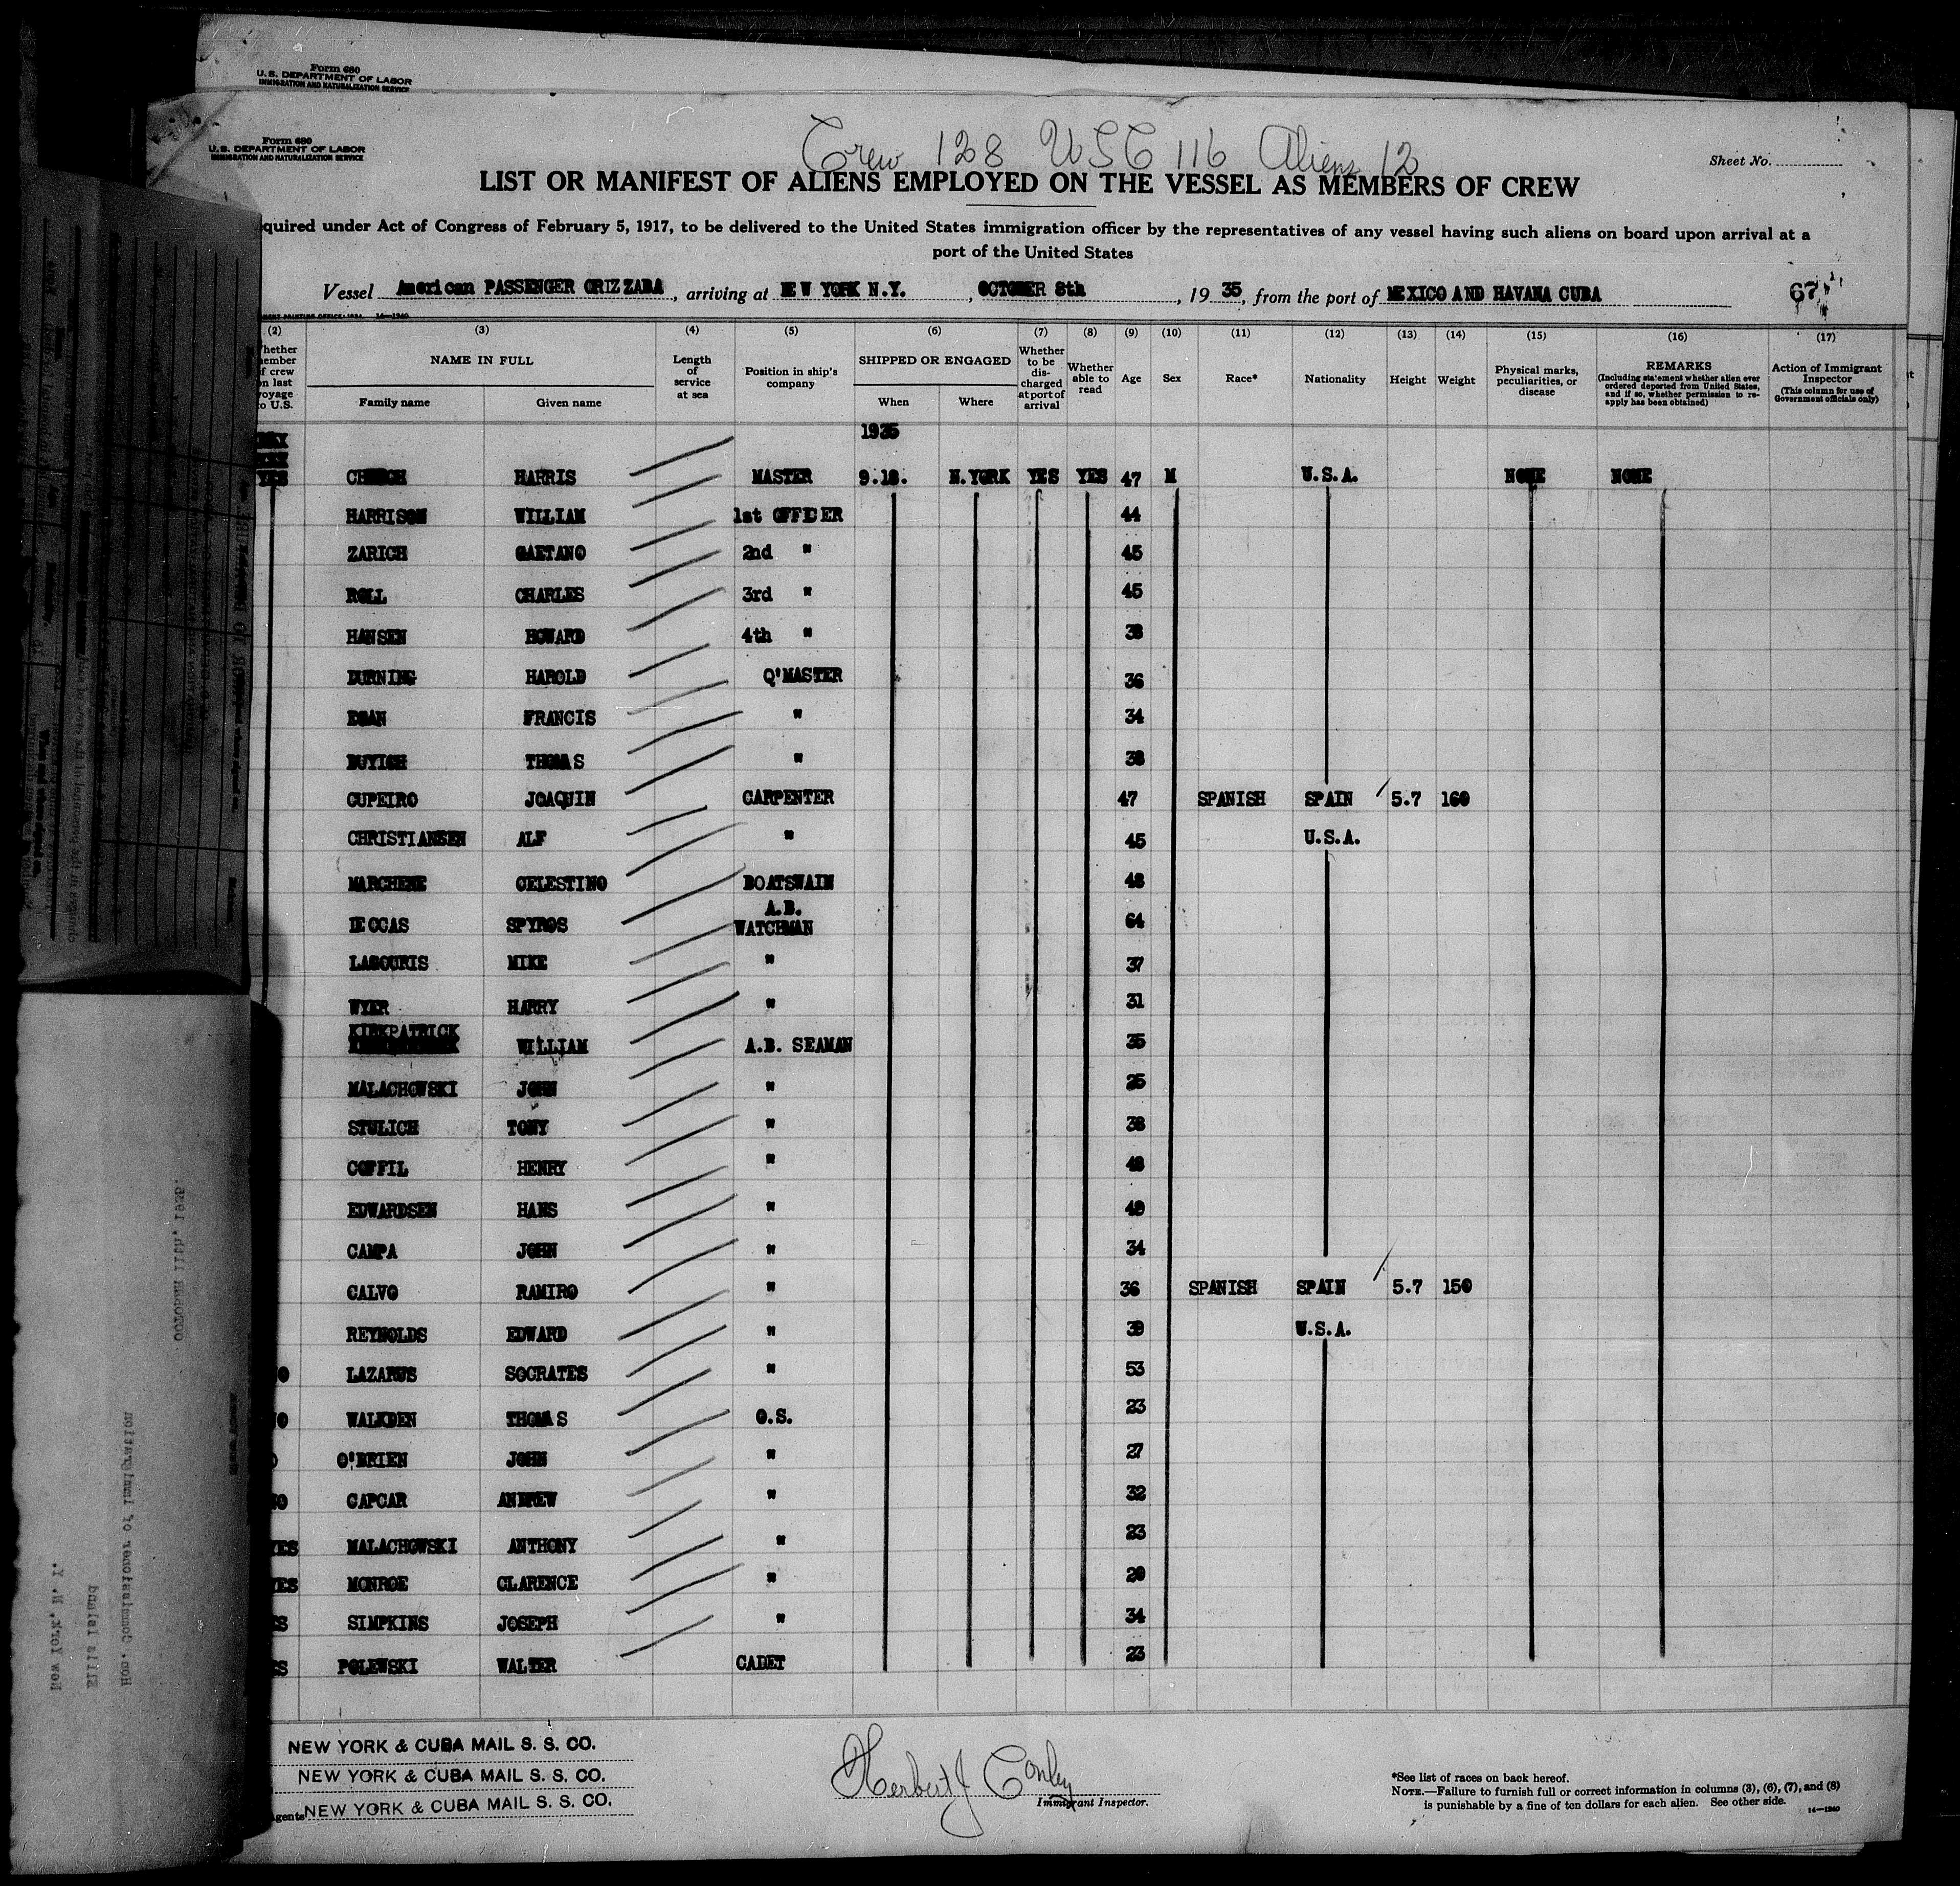 Form 680
U. S. DEPARTMENT OF LABOR
IMMIGRATION AND NATURALIZATION SERVICE
Form 680
U. S. DEPARTMENT OF LABOR
IMMIGRATION AND NATURALIZATION SERVICE
Crew 128 USC 116 Aliens 12
Sheet No.
LIST OR MANIFEST OF ALIENS EMPLOYED ON THE VESSEL AS MEMBERS OF CREW
quired under Act of Congress of February 5, 1917, to be delivered to the United States immigration officer by the representatives of any vessel having such aliens on board upon arrival at a
port of the United States
Vessel American PASSENGER ORIZZABA, arriving at NEW YORK N.Y., OCTOBER 8th, 1935, from the port of MEXICO AND HAVANA CUBA 67
(2) (3) (4) (5) (6) (7) (8) (9) (10) (11) (12) (13) (14) (15) (16) (17)
Whether member of crew on last voyage to U.S.
NAME IN FULL
Family name Given name
Length of service at sea
Position in ship's company
SHIPPED OR ENGAGED
When Where
Whether to be discharged at port of arrival
Whether able to read
Age Sex Race* Nationality Height Weight
Physical marks, peculiarities, or disease
REMARKS
(Including statement whether alien ever ordered deported from United States, and if so, whether permission to re-apply has been obtained)
Action of Immigrant Inspector
(This column for use of Government officials only)
1935
YES CHURCH HARRIS MASTER 9.18. N.YORK YES YES 47 M U.S.A. NONE NONE
HARRISON WILLIAM 1st OFFICER 44
ZARICH GAETANO 2nd " 45
ROLL CHARLES 3rd " 45
HANSEN HOWARD 4th " 38
DURNING HAROLD Q'MASTER 36
EGAN FRANCIS " 34
BUYICH THOMAS " 38
CUPEIRO JOAQUIN CARPENTER 47 SPANISH SPAIN 5.7 160
CHRISTIANSEN ALF " 45 U.S.A.
MARCHENE CELESTINO BOATSWAIN 48
SPYROS A.B. WATCHMAN 64
LAGOURIS MIKE " 37
WYER HARRY " 31
KIRKPATRICK WILLIAM A.B. SEAMAN 35
MALACHOWSKI JOHN " 25
STULICH TONY " 38
COFFIL HENRY " 48
EDWARDSEN HANS " 49
CAMPA JOHN " 34
CALVO RAMIRO " 36 SPANISH SPAIN 5.7 150
REYNOLDS EDWARD " 39 U.S.A.
O LAZARUS SOCRATES " 53
O WALKDEN THOMAS O.S. 23
O'BRIEN JOHN " 27
NO CAPCAR ANDREW " 32
YES MALACHOWSKI ANTHONY " 23
YES MONROE CLARENCE " 29
ES SIMPKINS JOSEPH " 34
ES POLEWSKI WALTER CADET 23
NEW YORK & CUBA MAIL S. S. CO.
NEW YORK & CUBA MAIL S. S. CO.
Agents NEW YORK & CUBA MAIL S. S. CO.
Herbert J Conley
Immigrant Inspector.
*See list of races on back hereof.
NOTE.—Failure to furnish full or correct information in columns (3), (6), (7), and (8)
is punishable by a fine of ten dollars for each alien. See other side.
14—1240
OCTOBER 11th, 1935.
Hon. Commissioner of Immigration
Ellis Island
New York, N. Y.